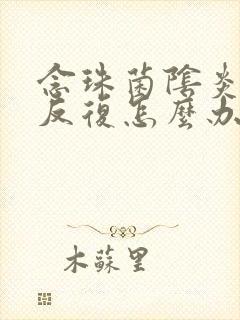 念珠菌陰炎
反復怎麼办
木蘇里